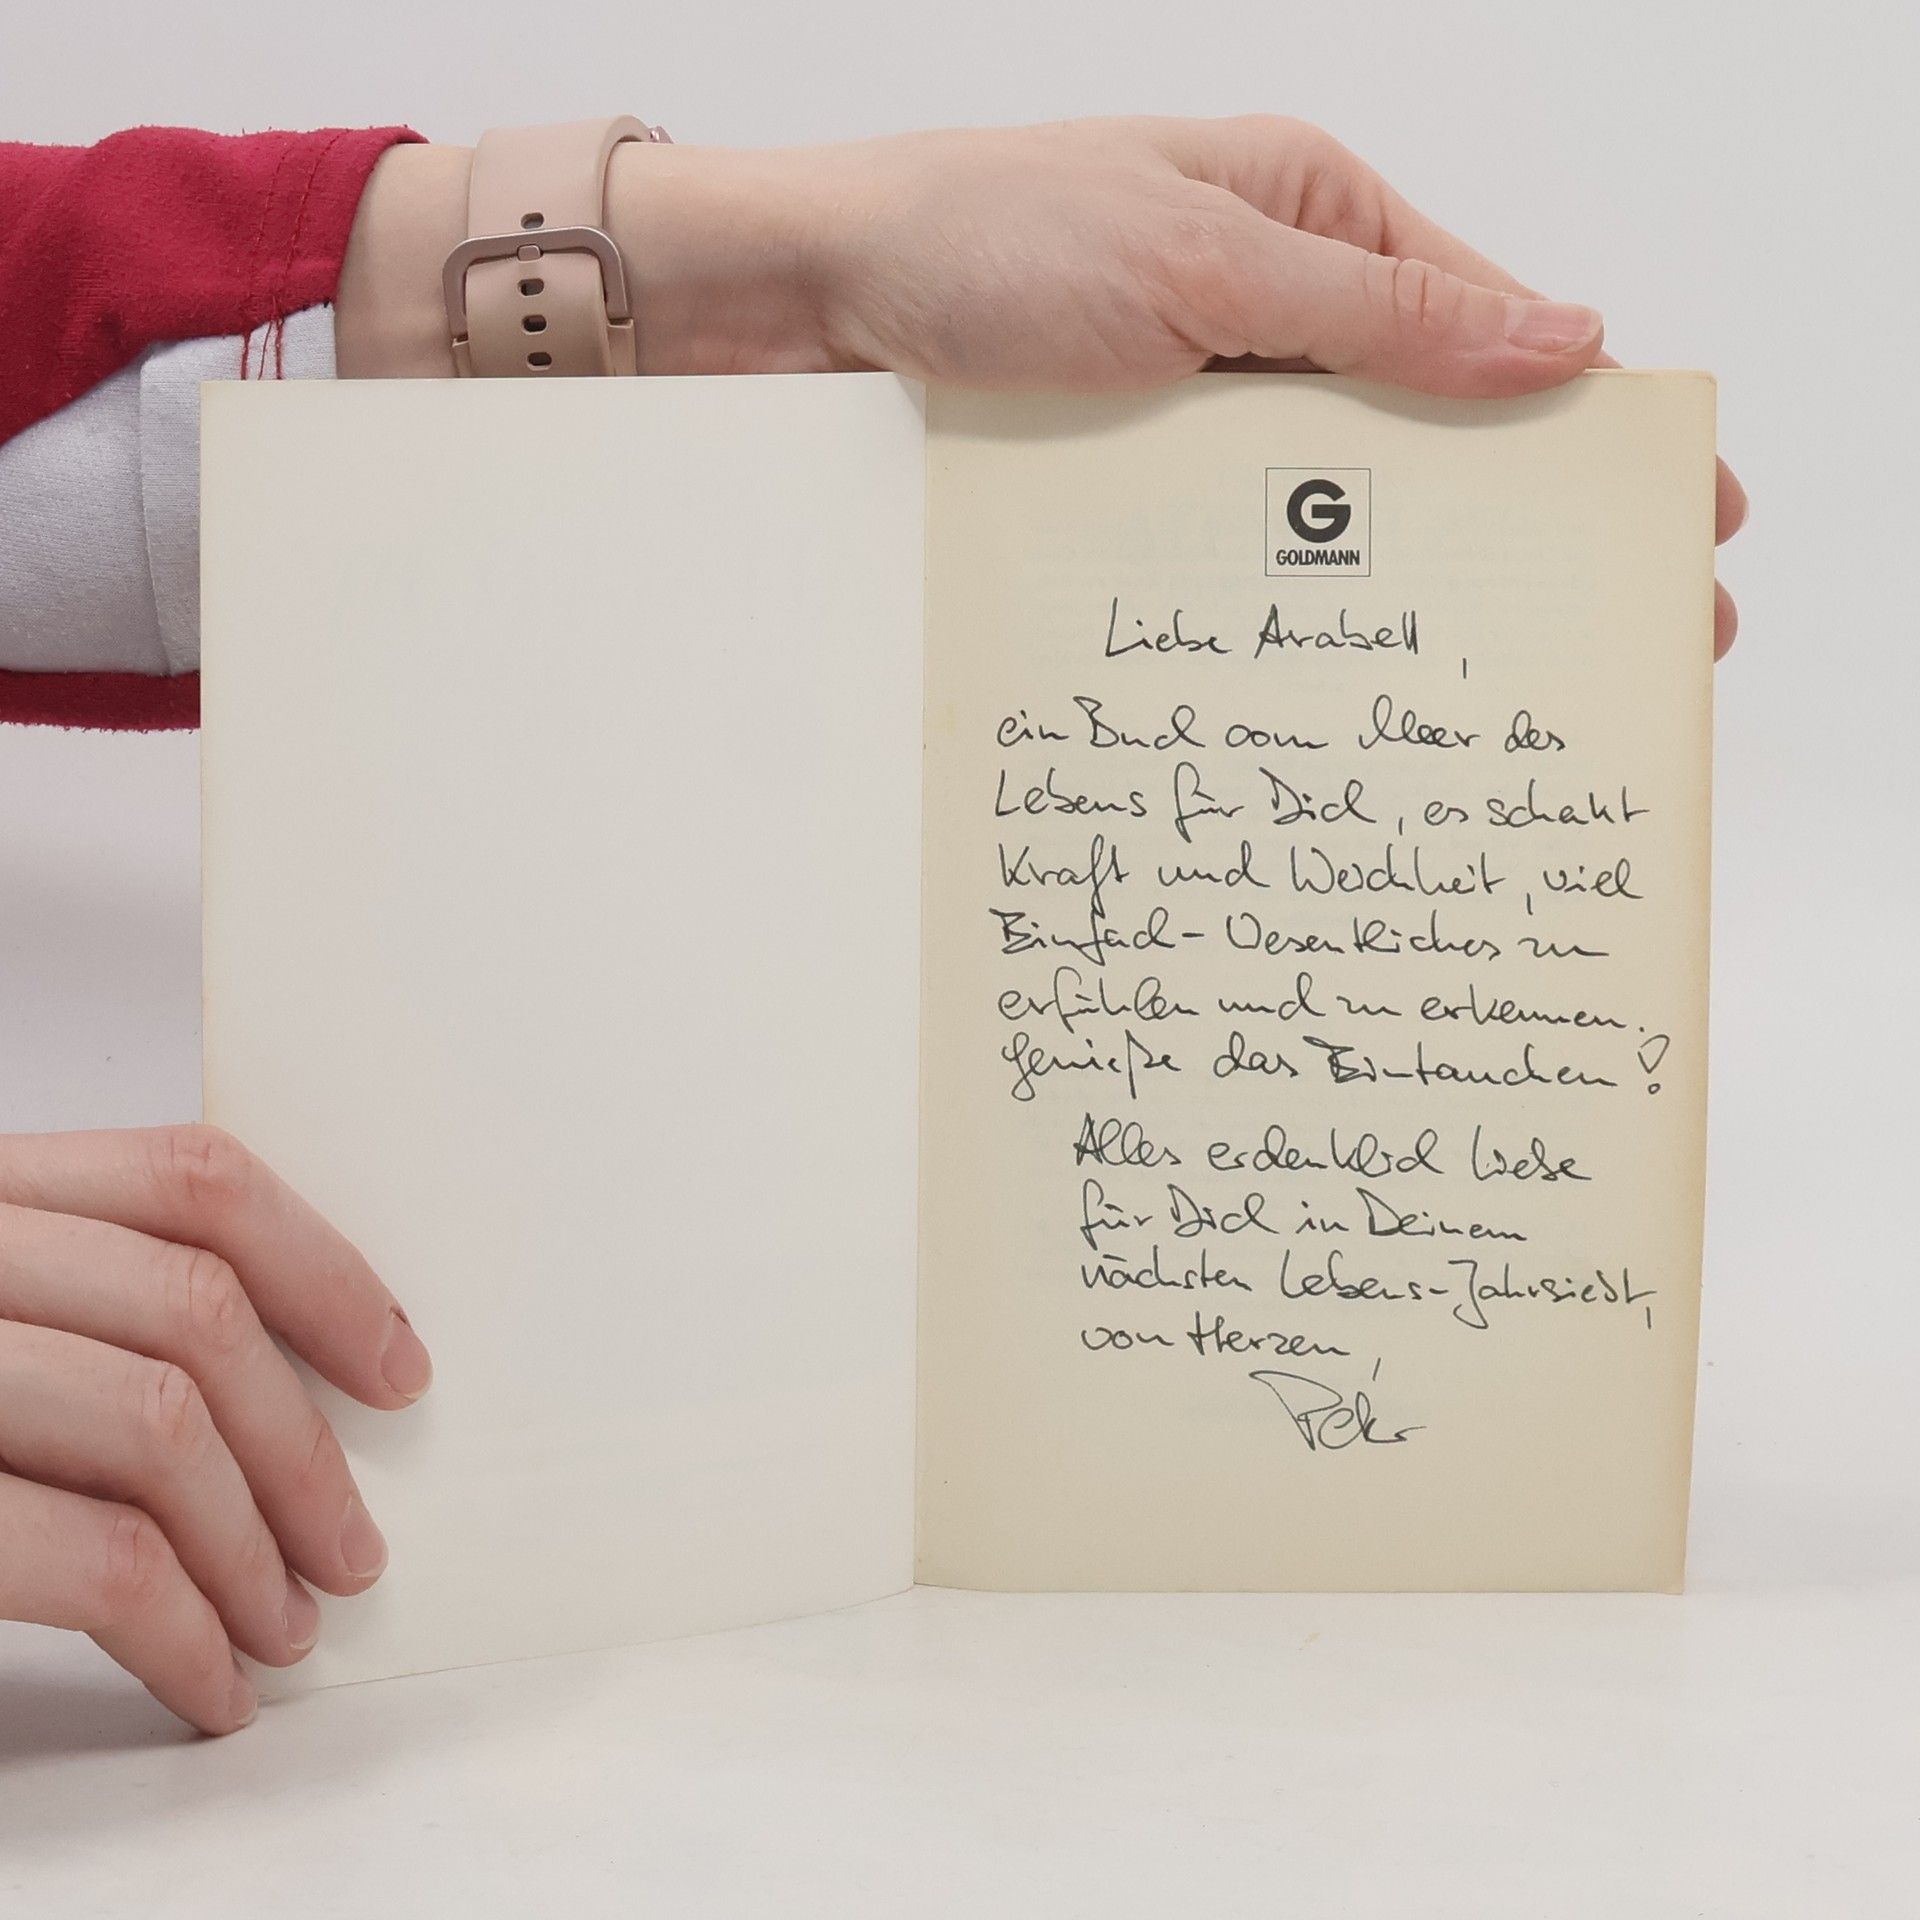 G
GOLDMANN
Liebe Arabell,
ein Buch vom Meer des
Lebens für Dich, es schenkt
Kraft und Weichheit, viel
Einfach-Wesentliches zu
erfühlen und zu erkennen.
Genieße das Ein-tauchen!
Alles erdenklich Liebe
für Dich in Deinem
nächsten Lebens-Jahrsiebt,
von Herzen,
Peter